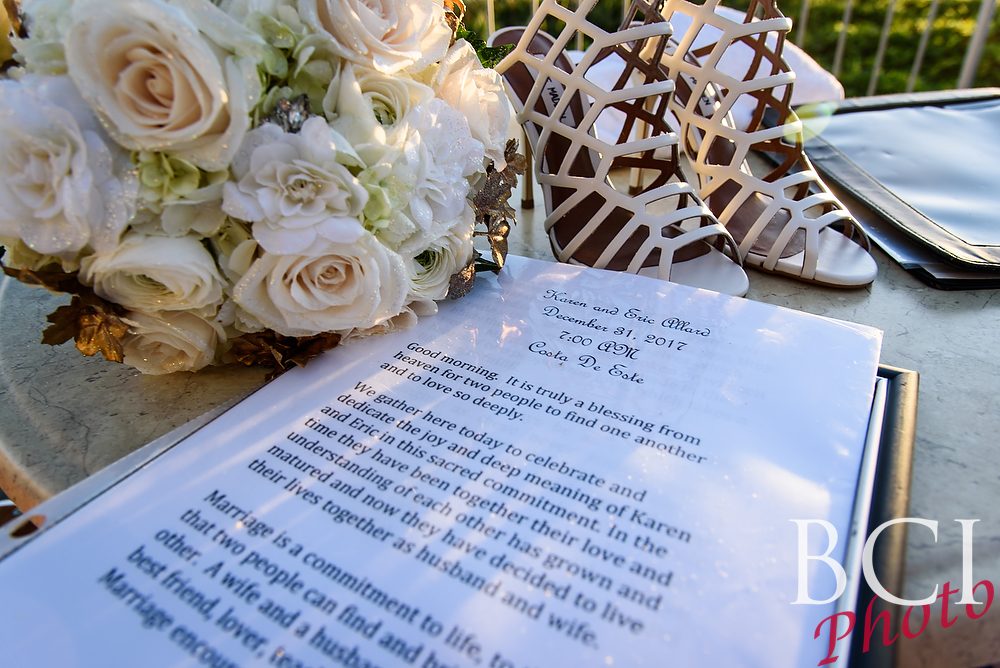 Karen and Eric Allard
December 31, 2017
7:00 AM
Costa De Este
Good morning. It is truly a blessing from
heaven for two people to find one another
and to love so deeply.
We gather here today to celebrate and
dedicate the joy and deep meaning of Karen
and Eric in this sacred commitment. In the
time they have been together their love and
understanding of each other has grown and
matured and now they have decided to live
their lives together as husband and wife.
Marriage is a commitment to life, to
that two people can find and b
other. A wife and a husba
best friend, lover, tea
Marriage encou
BCI
Photo